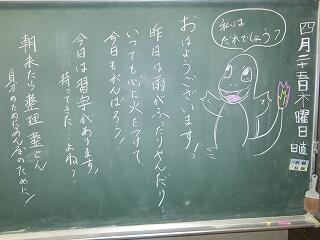 四月二五日木曜日
私は
だれでしょう？
おはようございます！
昨日は雨がふったりやんだり…
いつでも心に火をつけて、
今日もがんばろう！
今日は習字があります。
持ってきた…よね？
朝来たら整理整とん
自分のためにみんなのために！